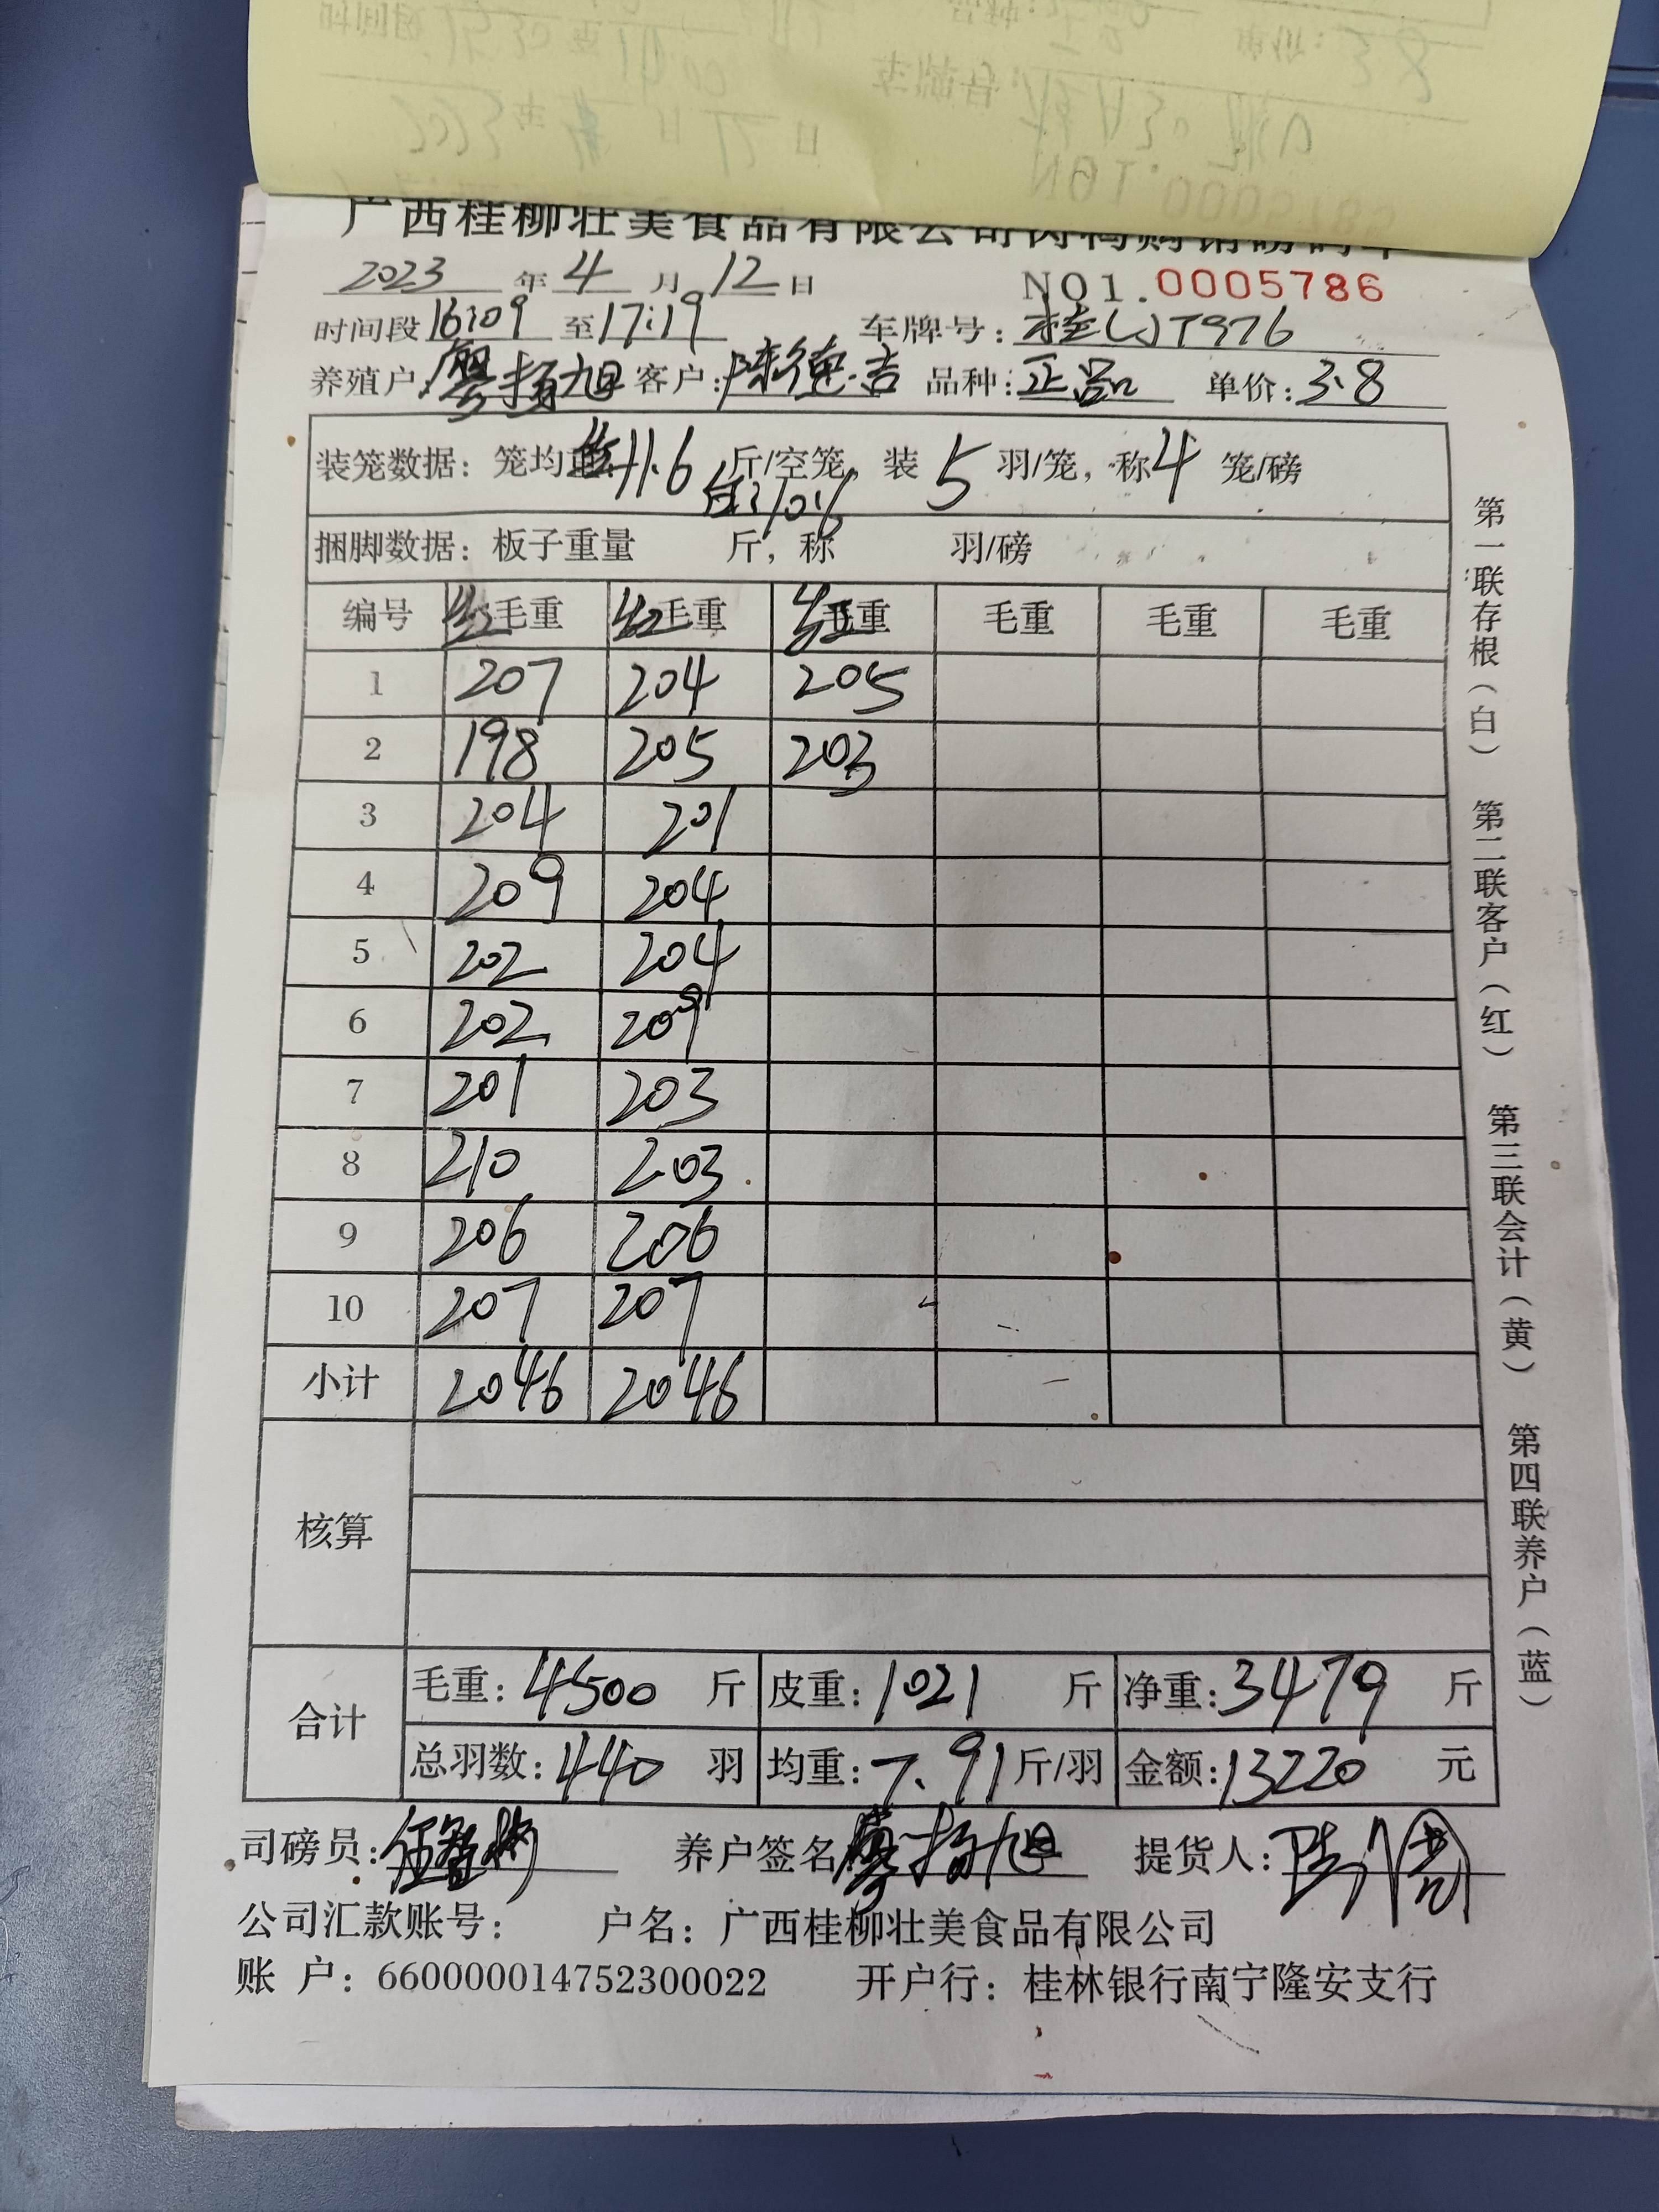 广西桂柳壮美食品有限公司肉鸭购销磅码单
2023 年 4 月 12 日 NO1.0005786
时间段 16:09 至 17:19 车牌号: 桂 JT976
养殖户: 廖扬旭 客户: 陈德吉 品种: 正品 单价: 3.8
装笼数据: 笼均重: 11.6 斤/空笼, 装 5 羽/笼, 称 4 笼/磅
白: 10.6
捆脚数据: 板子重量 斤, 称 羽/磅
编号 毛重 毛重 毛重 毛重 毛重 毛重
1 207 204 205
2 198 205 203
3 204 201
4 209 204
5 202 204
6 202 209
7 201 203
8 210 203
9 206 206
10 207 207
小计 2046 2046
核算
合计
毛重: 4500 斤 皮重: 1021 斤 净重: 3479 斤
总羽数: 440 羽 均重: 7.91 斤/羽 金额: 13220 元
司磅员: 养户签名: 廖扬旭 提货人:
公司汇款账号: 户名: 广西桂柳壮美食品有限公司
账 户: 660000014752300022 开户行: 桂林银行南宁隆安支行
第一联存根(白) 第二联客户(红) 第三联会计(黄) 第四联养户(蓝)